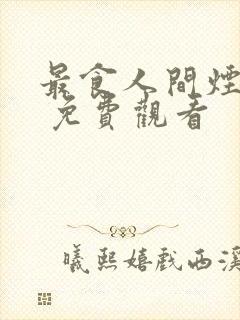 最食人間煙
免費觀看
曦熙嬉戲西溪